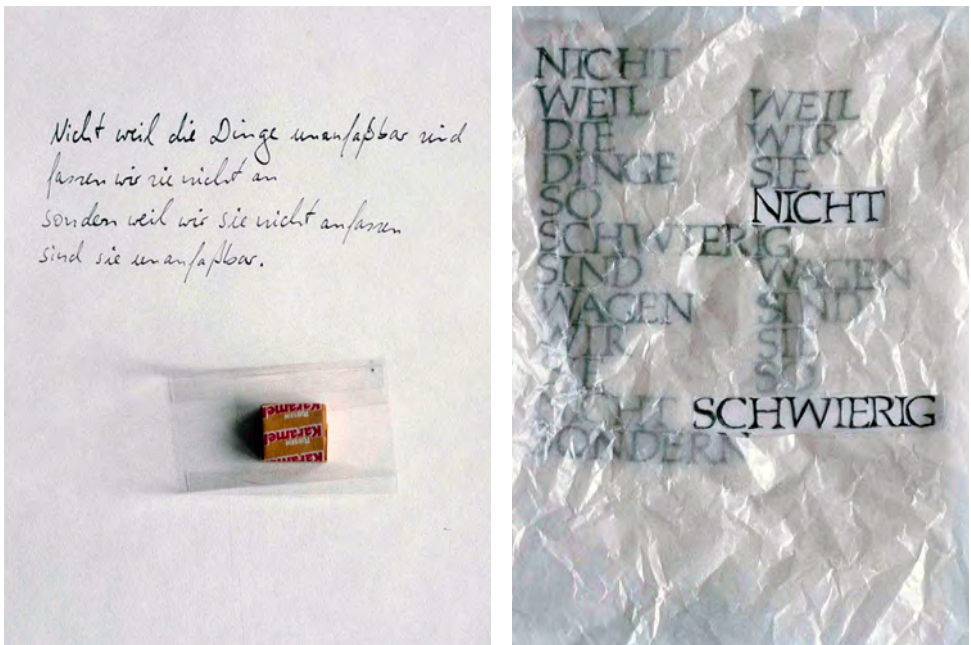 Nicht weil die Dinge unanfaßbar sind
fassen wir sie nicht an
sondern weil wir sie nicht anfassen
sind sie unanfaßbar.
Karamel
Karamel
Karamel
NICHT
WEIL
DIE
DINGE
SO
SCHWIERIG
SIND
WAGEN
WIR
SIE
NICHT
SONDERN
WEIL
WIR
SIE
NICHT
WAGEN
SIND
SIE
SO
SCHWIERIG